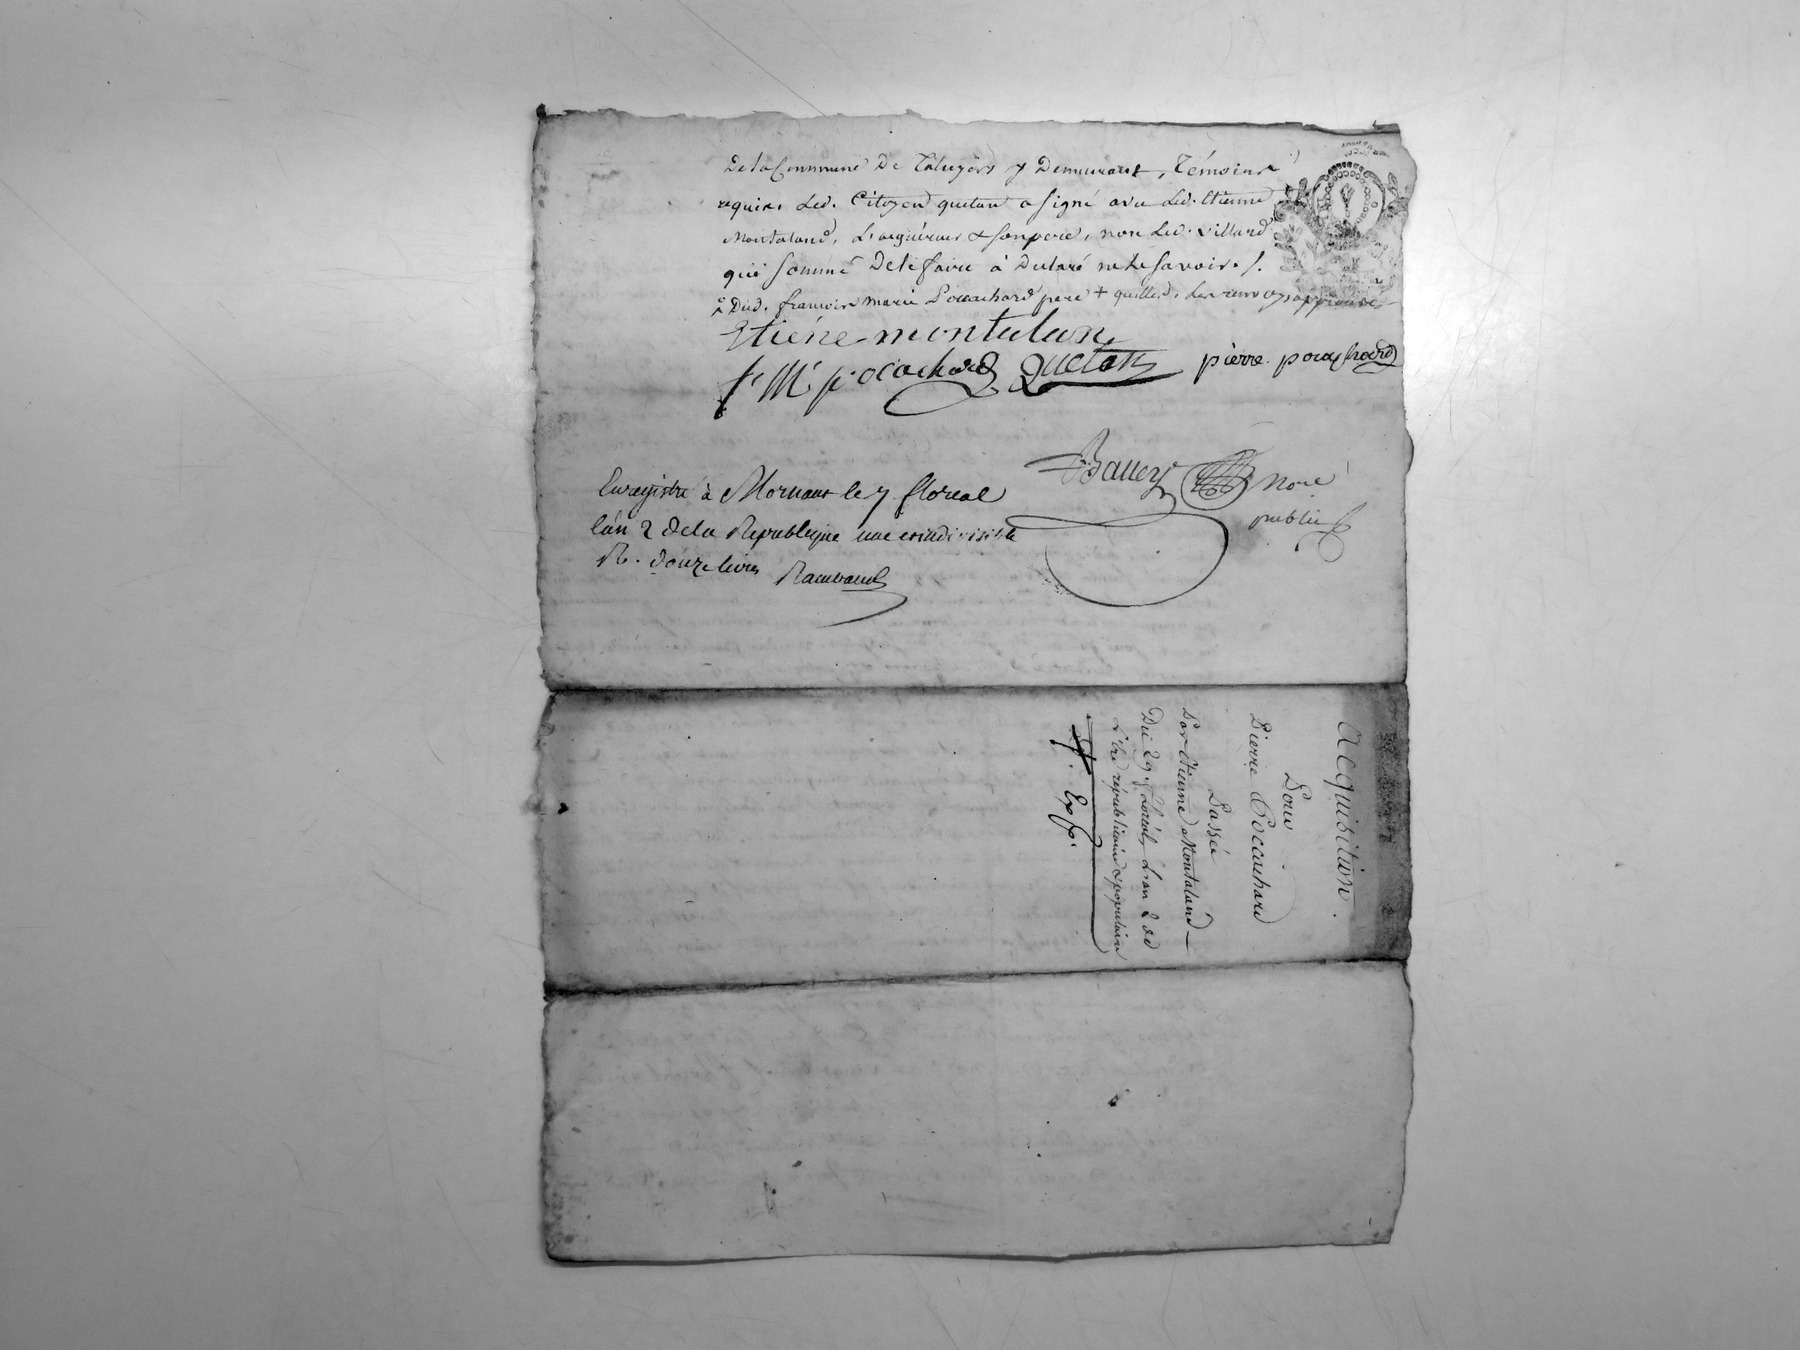 De la Commune De Taluyers y Demeurant, Témoins
requis. Led. Citoyen quetan a signé avec Led. Etienne
Montaland, L'acquéreur & son pere, non Led. Villard
qui sommé De le faire à Declaré ne le savoir ./.
Dud. francois marie Pocachard pere + qu'elle d. Les renvoys approuvé
Etiéne montalan
f. M. pocachard Quetan pierre pocachard
Ballery Noré
public
Enregistré à Mornant le 7 floreal
l'an 2 de la Republique une et indivisible
R. douze livres Raimbaud
Acquisition.
Pour
Pierre Poccachard
Passée
Par Etienne Montaland
Du 29 L'an 2 de
L'Ere républicaine & populaire
Exp.